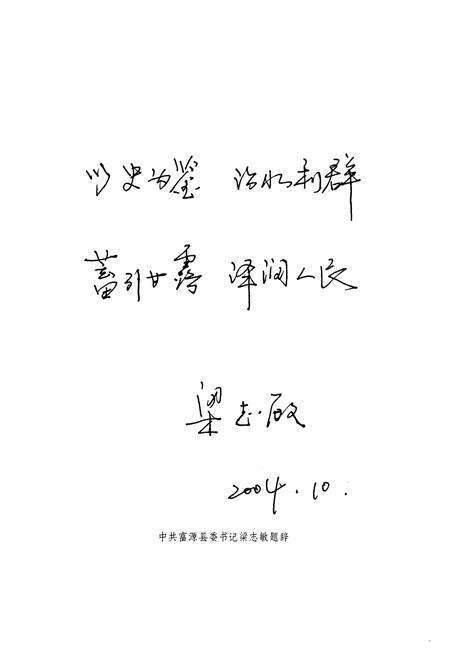 以史为鉴 治水利群
蓄引甘露 泽润人民
梁志敏
2004.10.
中共富源县委书记梁志敏题辞